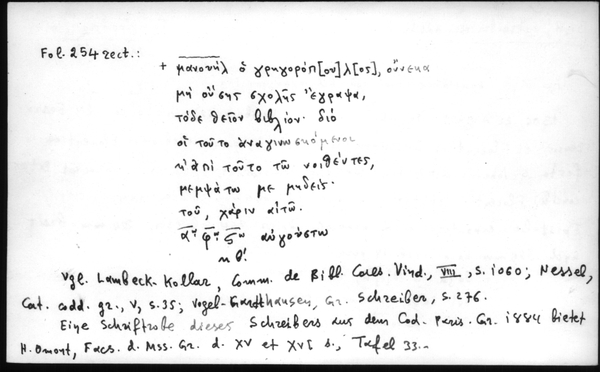 Fol. 254 rect.:
+ μανουὴλ ὁ γρηγορόπ[ου]λ[ος], οὕνεκα
μὴ οὔσης σχολῆς ἔγραψα,
τόδε θεῖον βιβλίον· διὸ
οἱ τοῦτο ἀναγινωσκόμενοι
τοῦτο τῶ
μεμψάτω με μηδείς·
τοῦ, χάριν αἰτῶ.
αὐγούστω
Vgl. Lambeck-Kollar, Comm. de Bibl. Caes. Vind., VIII, S. 1060; Nessel,
Cat. codd. gr., V, S. 35; Vogel-Gardthausen, Gr. Schreiber, S. 276.
Eine Schriftprobe dieses Schreibers aus dem Cod. Paris. Gr. 1884 bietet
H. Omont, Facs. d. Mss. Gr. d. XV et XVI s., Tafel 33.-